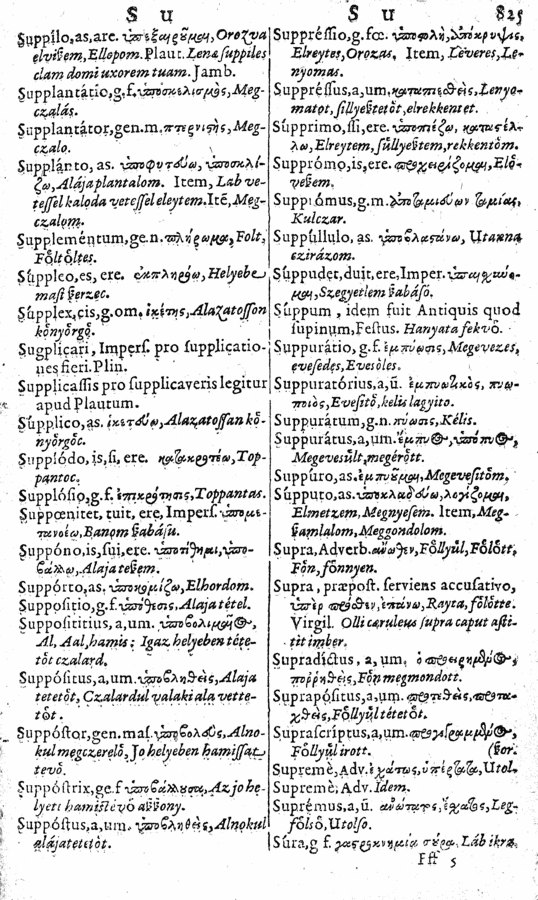 S u
S u 825
Suppílo, as, are. ὑπεξαιροῦμαι, Orozva
elviʃem, Ellopom. Plaut. Lena suppiles
clam domi uxorem tuam. Jamb.
Supplantátio, g. f. ὑποσκελισμὸς, Meg-
czalás.
Supplantátor, gen. m. πτερνιστὴς, Meg-
czalo.
Supplánto, as. ὑποφυτεύω, ὑποσκελί-
ζω, Alája plantalom. Item, Lab ve-
tessel kaloda vetessel eleytem. Itē, Meg-
czalom.
Suppleméntum, ge. n. πλήρωμα, Folt,
Fȏltȏltes.
Súppleo, es, ere. ἐκπληρόω, Helyebe
mast ʃerzec.
Súpplex, cis, g. om. ἱκέτης, Alazatosson
kȏnyȏrgȏ.
Supplicari, Impers. pro supplicatio-
nes fieri. Plin.
Supplicassis pro supplicaveris legitur
apud Plautum.
Súpplico, as. ἱκετεύω, Alazatossan kȏ-
nyȏrgȏc.
Supplódo, is, si, ere. κατακροτέω, Top-
pantoc.
Supplósio, g. f. ἐπικρότησις, Toppantas.
Suppœnitet, tuit, ere, Impers. ὑπομε-
τανοέω, Banom ʃabásu.
Suppóno, is, sui, ere. ὑποτίθημι, ὑπο-
βάλλω, Alaja teʃem.
Suppórto, as, ὑποκομίζω, Elhordom.
Suppositio, g. f. ὑπόθεσις, Alaja tétel.
Supposititius, a, um. ὑποβολιμαῖος,
Al, Aal, hamis: Igaz helyeben téte-
tȏt czalard.
Suppósitus, a, um. ὑποβληθεὶς, Alaja
tetetȏt, Czalardul valaki ala vette-
tȏt.
Suppóstor, gen. mas. ὑποβολεὺς, Alno-
kul megczerelȏ, Jo helyeben hamissat
tevȏ.
Suppóstrix, ge. f. ὑποβάλλουσα, Az jo he-
lyett hamisstevȏ aʃʃony.
Suppóstus, a, um. ὑποβληθεὶς, Alnokul
alája tetetȏt.
Suppréssio, g. fœ. ὑποστολὴ, ἀπόκρυψις,
Elreytes, Orozas. Item, Léveres, Le-
nyomas.
Suppréssus, a, um. καταπιεσθεὶς, Lenyo-
matot, sillyeʃtetȏt, elrekkentet.
Súpprimo, ssi, ere. ὑποπιέζω, καταστέλ-
λω, Elreytem, sȕllyeʃtem, rekkentȏm.
Supprómo, is, ere. προχειρίζομαι, Elȏ-
veʃem.
Supprómus, g. m. ἀποταμιεύων ταμίας,
Kulczar.
Suppúllulo, as. ὑποβλαστάνω, Utanna
czirázom.
Suppudet, duit, ere, Imper. ὑπαισχύνο-
μαι, Szegyetlem ʃabásȏ.
Súppum, idem fuit Antiquis quod
supinum, Festus. Hanyata fekvȏ.
Suppurátio, g. f. ἐμπύωσις, Megevezes,
evesedes, Evesȏles.
Suppuratórius, a, ū. ἐμπυωτικὸς, πυω-
ποιὸς, Evesitȏ, kelis lagyito.
Suppurátum, g. n. πύωσις, Kélis.
Suppurátus, a, um. ἔμπυος, ὑπόπυος,
Megevesȕlt, megérȏtt.
Suppúro, as. ἐμπυοῦμαι, Megevesitȏm.
Súpputo, as. ὑποκλαδεύω, λογίζομαι,
Elmetzem, Megnyesem. Item, Meg-
ʃamlalom, Meggondolom.
Supra, Adverb. ἄνωθεν, Fȏllyȕl, Fȏlȏtt,
Fȏn, fȏnnyen.
Supra, præpost. serviens accusativo,
ὑπὲρ πρόσθεν, ἐπάνω, Rayta, fȏlȏtte.
Virgil. Olli cæruleus supra caput asti-
tit imber.
Supradíctus, a, um. ὁ προειρημένος,
ποῤῥηθεὶς, Fȏn megmondott.
Suprapósitus, a, um. προτεθεὶς, προτα-
χθεὶς, Fȏllyȕl tétetȏt.
Suprascríptus, a, um. προγεγραμμένος,
Fȏllyȕl irott. (ʃor.
Supremè, Adv. ἐχάτως, ὑπέρτατα, Utol-
Supremè, Adv. Idem.
Suprémus, a, ū. ἀνώτατος, ἔσχατος, Leg-
fȏlsȏ, Utolso.
Sura, g f. γαστροκνημία σύρα, Láb ikra.
Fff 5